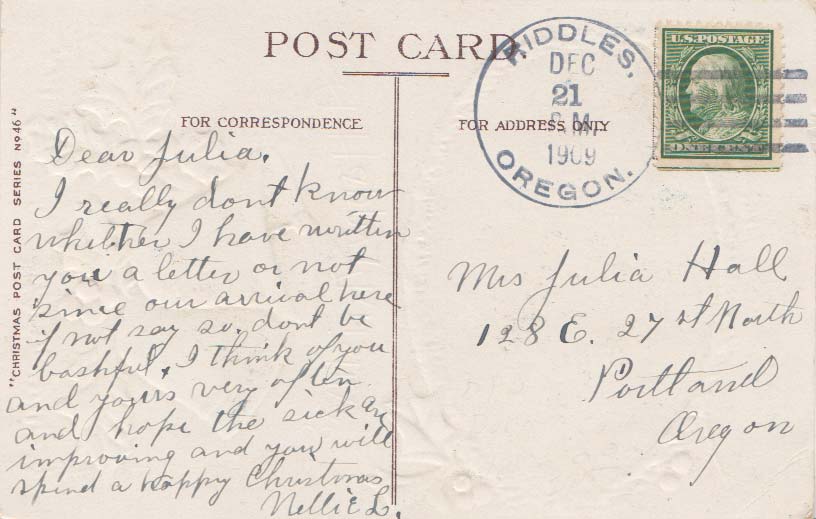 POST CARD.
FOR CORRESPONDENCE
FOR ADDRESS ONLY
"CHRISTMAS POST CARD SERIES No 46"
RIDDLES,
DEC
21
P.M.
1909
OREGON.
U.S. POSTAGE
ONE CENT
Dear Julia.
I really dont know
whether I have written
you a letter or not
since our arrival here
if not say so. dont be
bashful. I think of you
and yours very often
and hope the sick are
improving and you will
spend a happy Christmas
Nellie L.
Mrs Julia Hall
128 E. 27 st North
Portland
Oregon